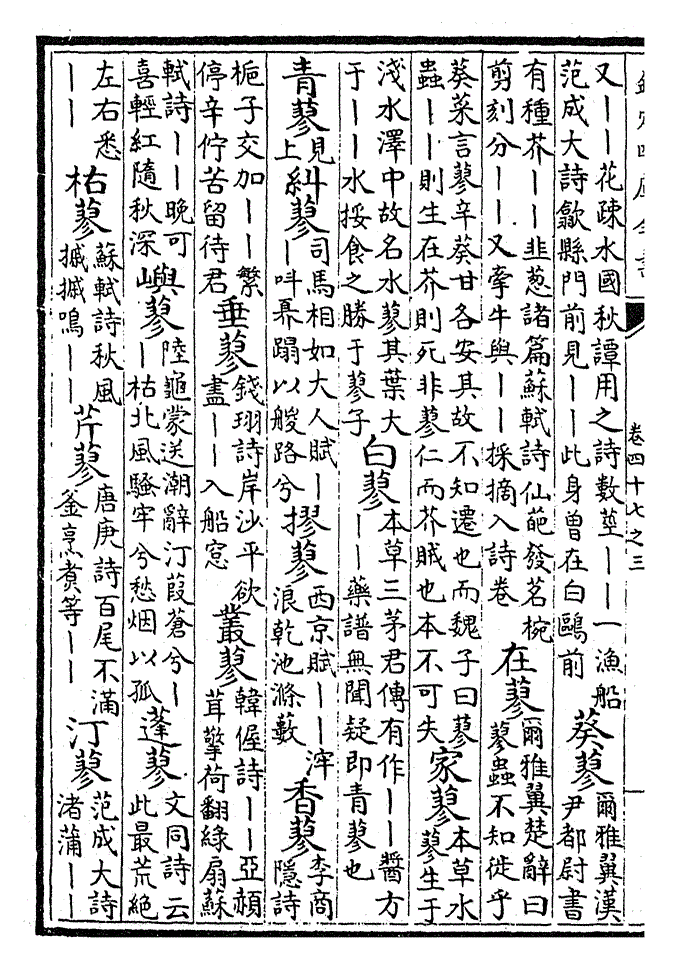 欽定四庫全書 卷四十七之三
又——花疎水國秋譚用之詩數莖——一漁船范成大詩歙縣門前見——此身曾在白鷗前葵蓼爾雅翼漢尹都尉書
有種芥——韭葱諸篇蘇軾詩仙葩發茗椀剪刻分——又牽牛與——採摘入詩卷在蓼爾雅翼楚辭曰蓼蟲不知徙乎
葵菜言蓼辛葵甘各安其故不知遷也而魏子曰蓼蟲——則生在芥則死非蓼仁而芥賊也本不可失家蓼本草水蓼生于
淺水澤中故名水蓼其葉大于——水挼食之勝于蓼子白蓼本草三茅君傳有作——醬方——藥譜無聞疑即青蓼也
青蓼見上糾蓼司馬相如大人賦——叫奡蹋以艐路兮摎蓼西京賦——浶浪乾池滌藪香蓼李商隱詩
梔子交加——繁停辛佇苦留待君垂蓼錢珝詩岸沙平欲盡——入船窓叢蓼韓偓詩——亞赪茸擎荷翻綠扇蘇
軾詩——晚可喜輕紅隨秋深嶼蓼陸龜蒙送潮辭汀葭蒼兮——枯北風騷牢兮愁烟以孤蓬蓼文同詩云此最荒絕
左右悉——枯蓼蘇軾詩秋風摵摵鳴——芹蓼唐庚詩百尾不滿釜烹煮等——汀蓼范成大詩渚蒲——